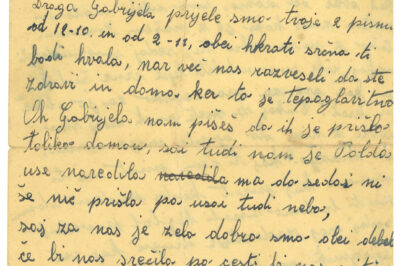 Draga Gabrijela prijele smo tvoje 2 pismi
od 12-10. in od 2-11, obei hkrati srčna ti
bodi hvala, nar več nas razveseli da ste
zdravi in doma ker to je
Oh Gabrijela nam pišeš da ih je prišlo
toliko domou, saj tudi nam je Polda
use naredila naredila ma do sedaj ni
še nič prišla pa usai tudi neba,
saj za nas je zelo dobro smo obei debele
če bi nas srečila po cesti bi nas